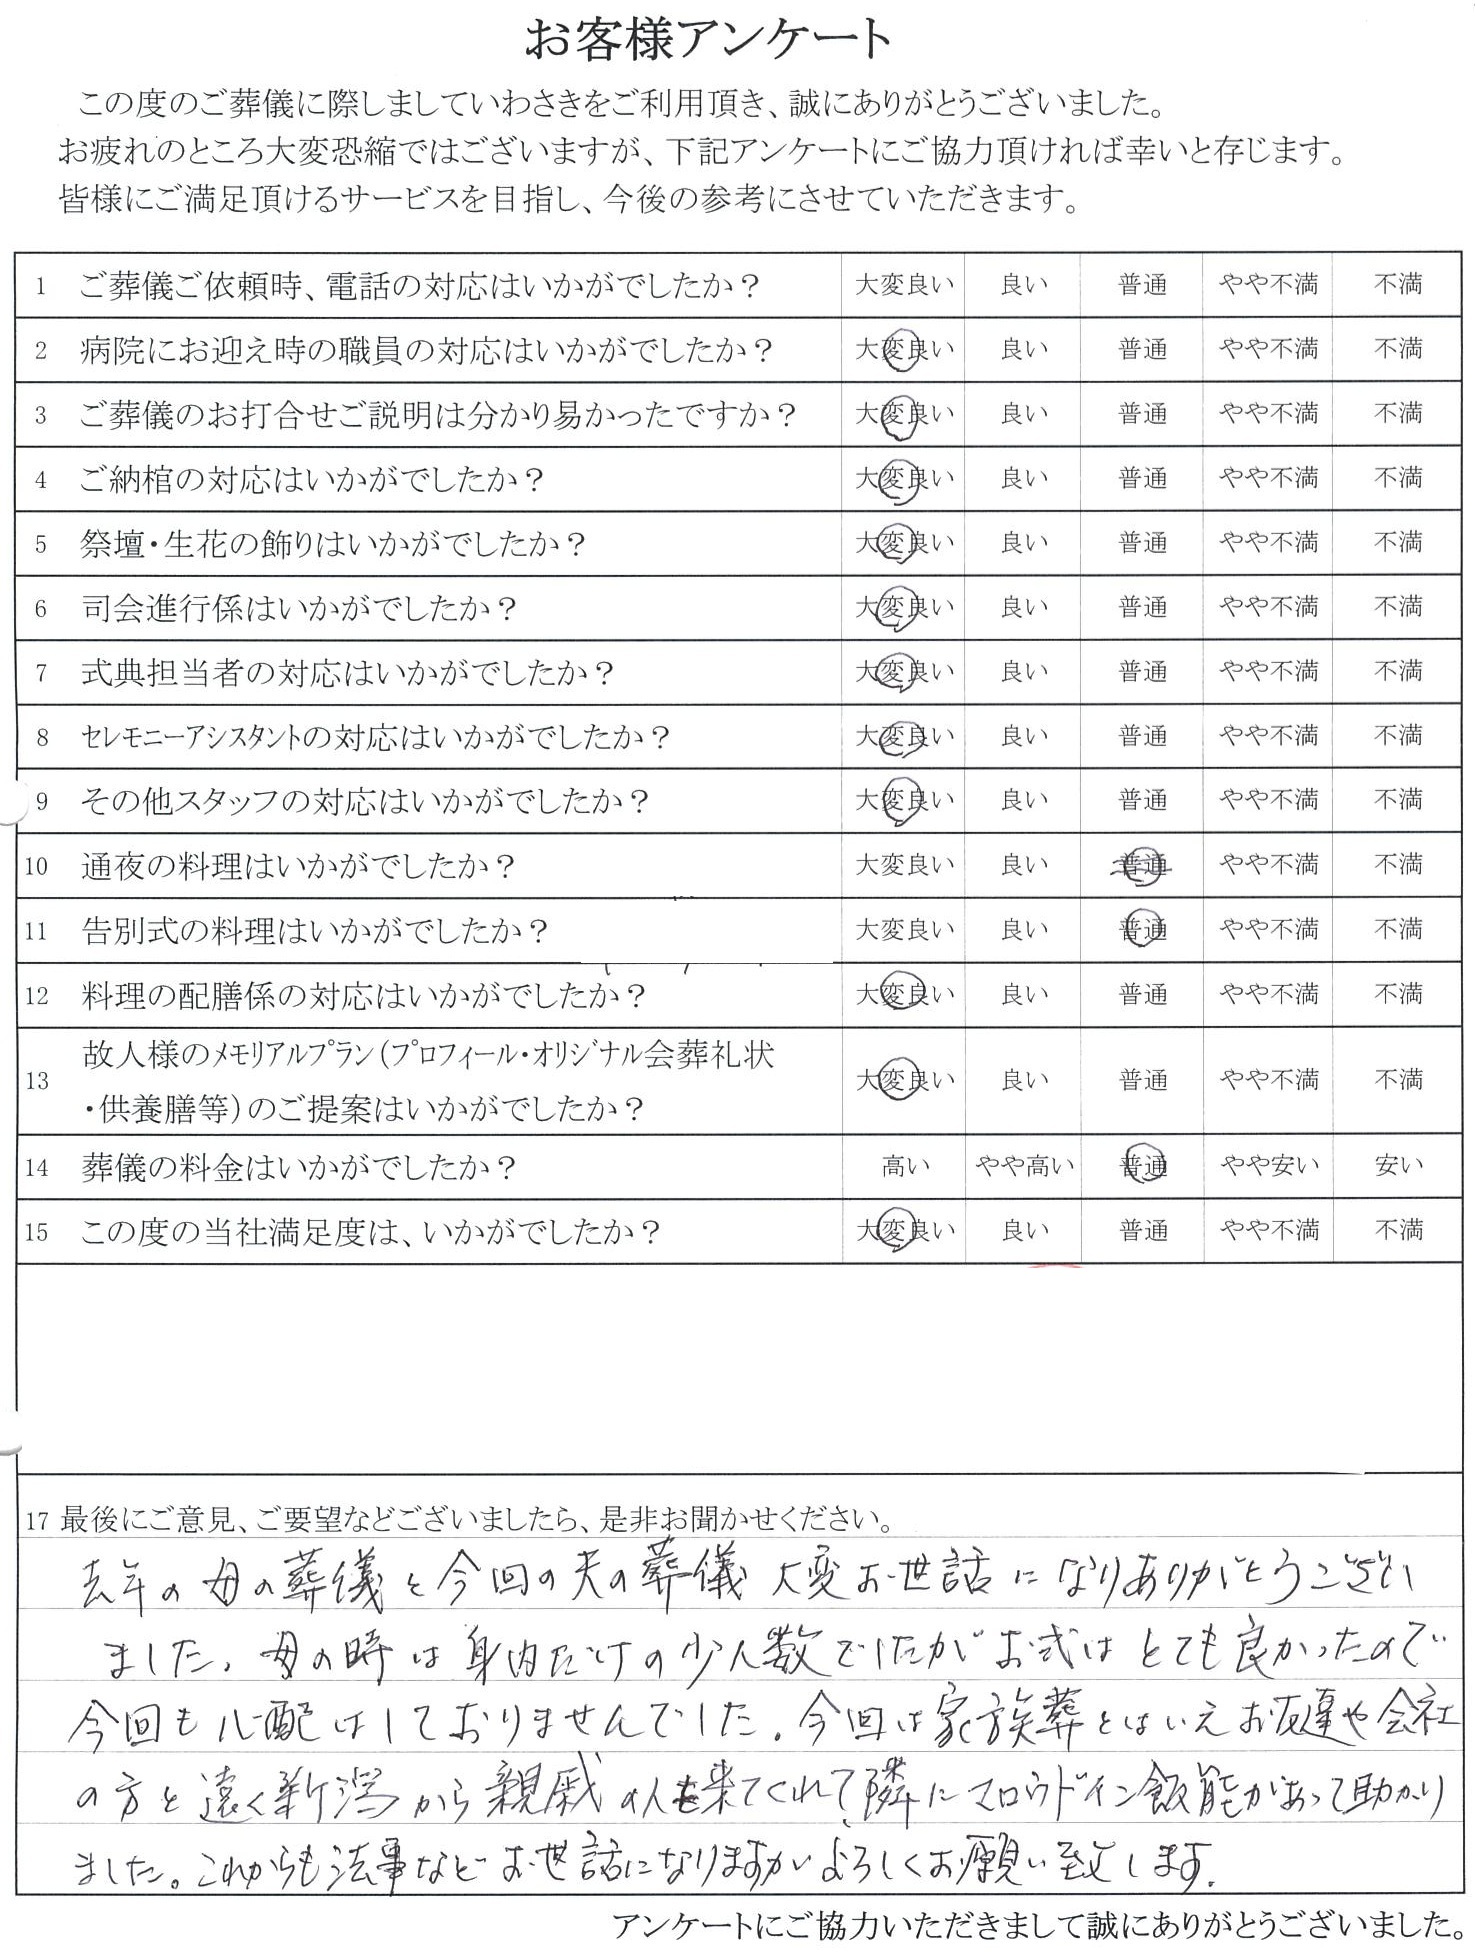 お客様アンケート
この度のご葬儀に際しましていわさきをご利用頂き、誠にありがとうございました。
お疲れのところ大変恐縮ではございますが、下記アンケートにご協力頂ければ幸いと存じます。
皆様にご満足頂けるサービスを目指し、今後の参考にさせていただきます。
1 ご葬儀ご依頼時、電話の対応はいかがでしたか？ 大変良い 良い 普通 やや不満 不満
2 病院にお迎え時の職員の対応はいかがでしたか？ 大変良い 良い 普通 やや不満 不満
3 ご葬儀のお打合せご説明は分かり易かったですか？ 大変良い 良い 普通 やや不満 不満
4 ご納棺の対応はいかがでしたか？ 大変良い 良い 普通 やや不満 不満
5 祭壇・生花の飾りはいかがでしたか？ 大変良い 良い 普通 やや不満 不満
6 司会進行係はいかがでしたか？ 大変良い 良い 普通 やや不満 不満
7 式典担当者の対応はいかがでしたか？ 大変良い 良い 普通 やや不満 不満
8 セレモニーアシスタントの対応はいかがでしたか？ 大変良い 良い 普通 やや不満 不満
9 その他スタッフの対応はいかがでしたか？ 大変良い 良い 普通 やや不満 不満
10 通夜の料理はいかがでしたか？ 大変良い 良い 普通 やや不満 不満
11 告別式の料理はいかがでしたか？ 大変良い 良い 普通 やや不満 不満
12 料理の配膳係の対応はいかがでしたか？ 大変良い 良い 普通 やや不満 不満
13 故人様のメモリアルプラン（プロフィール・オリジナル会葬礼状
・供養膳等）のご提案はいかがでしたか？ 大変良い 良い 普通 やや不満 不満
14 葬儀の料金はいかがでしたか？ 高い やや高い 普通 やや安い 安い
15 この度の当社満足度は、いかがでしたか？ 大変良い 良い 普通 やや不満 不満
17 最後にご意見、ご要望などございましたら、是非お聞かせください。
去年の母の葬儀と今回の夫の葬儀 大変お世話になりありがとうござい
ました。母の時は身内だけの少人数でしたがお式はとても良かったので
今回も心配はしておりませんでした。今回は家族葬とはいえお友達や会社
の方と遠く新潟から親戚の人も来てくれて隣にマロウドイン飯能があって助かり
ました。これからも法事などお世話になりますがよろしくお願い致します。
アンケートにご協力いただきまして誠にありがとうございました。